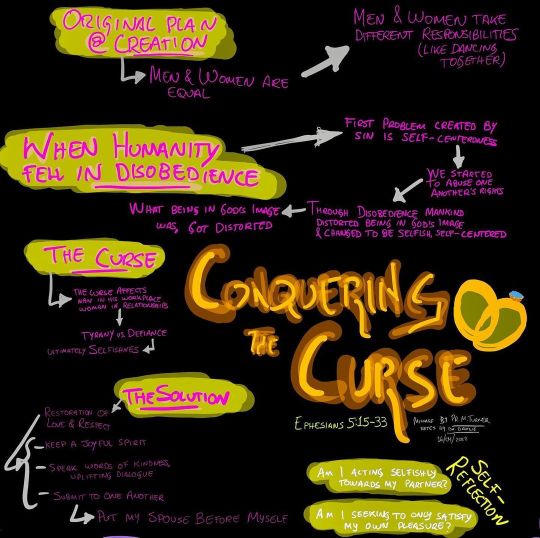 ORIGINAL PLAN
@ CREATION
MEN & WOMEN ARE
EQUAL
MEN & WOMEN TAKE
DIFFERENT RESPONSIBILITIES
(LIKE DANCING
TOGETHER)
WHEN HUMANITY
FELL IN DISOBEDIENCE
FIRST PROBLEM CREATED BY
SIN IS SELF-CENTEREDNESS
WE STARTED
TO ABUSE ONE
ANOTHER'S RIGHTS
THROUGH DISOBEDIENCE MANKIND
DISTORTED BEING IN GOD'S IMAGE
& CHANGED TO BE SELFISH, SELF-CENTERED
WHAT BEING IN GOD'S IMAGE
WAS, GOT DISTORTED
THE CURSE
THE CURSE AFFECTS
MAN IN HIS WORKPLACE
WOMAN IN RELATIONSHIPS
TYRANY VS. DEFIANCE
ULTIMATELY SELFISHNES
CONQUERING
THE
CURSE
EPHESIANS 5:15-33
MESSAGE BY PR. M. TURNER
NOTES BY
THE SOLUTION
RESTORATION OF
LOVE & RESPECT
KEEP A JOYFUL SPIRIT
SPEAK WORDS OF KINDNESS,
UPLIFTING DIALOGUE
SUBMIT TO ONE ANOTHER
PUT MY SPOUSE BEFORE MYSELF
SELF-
REFLECTION
AM I ACTING SELFISHLY
TOWARDS MY PARTNER?
AM I SEEKING TO ONLY SATISFY
MY OWN PLEASURE?